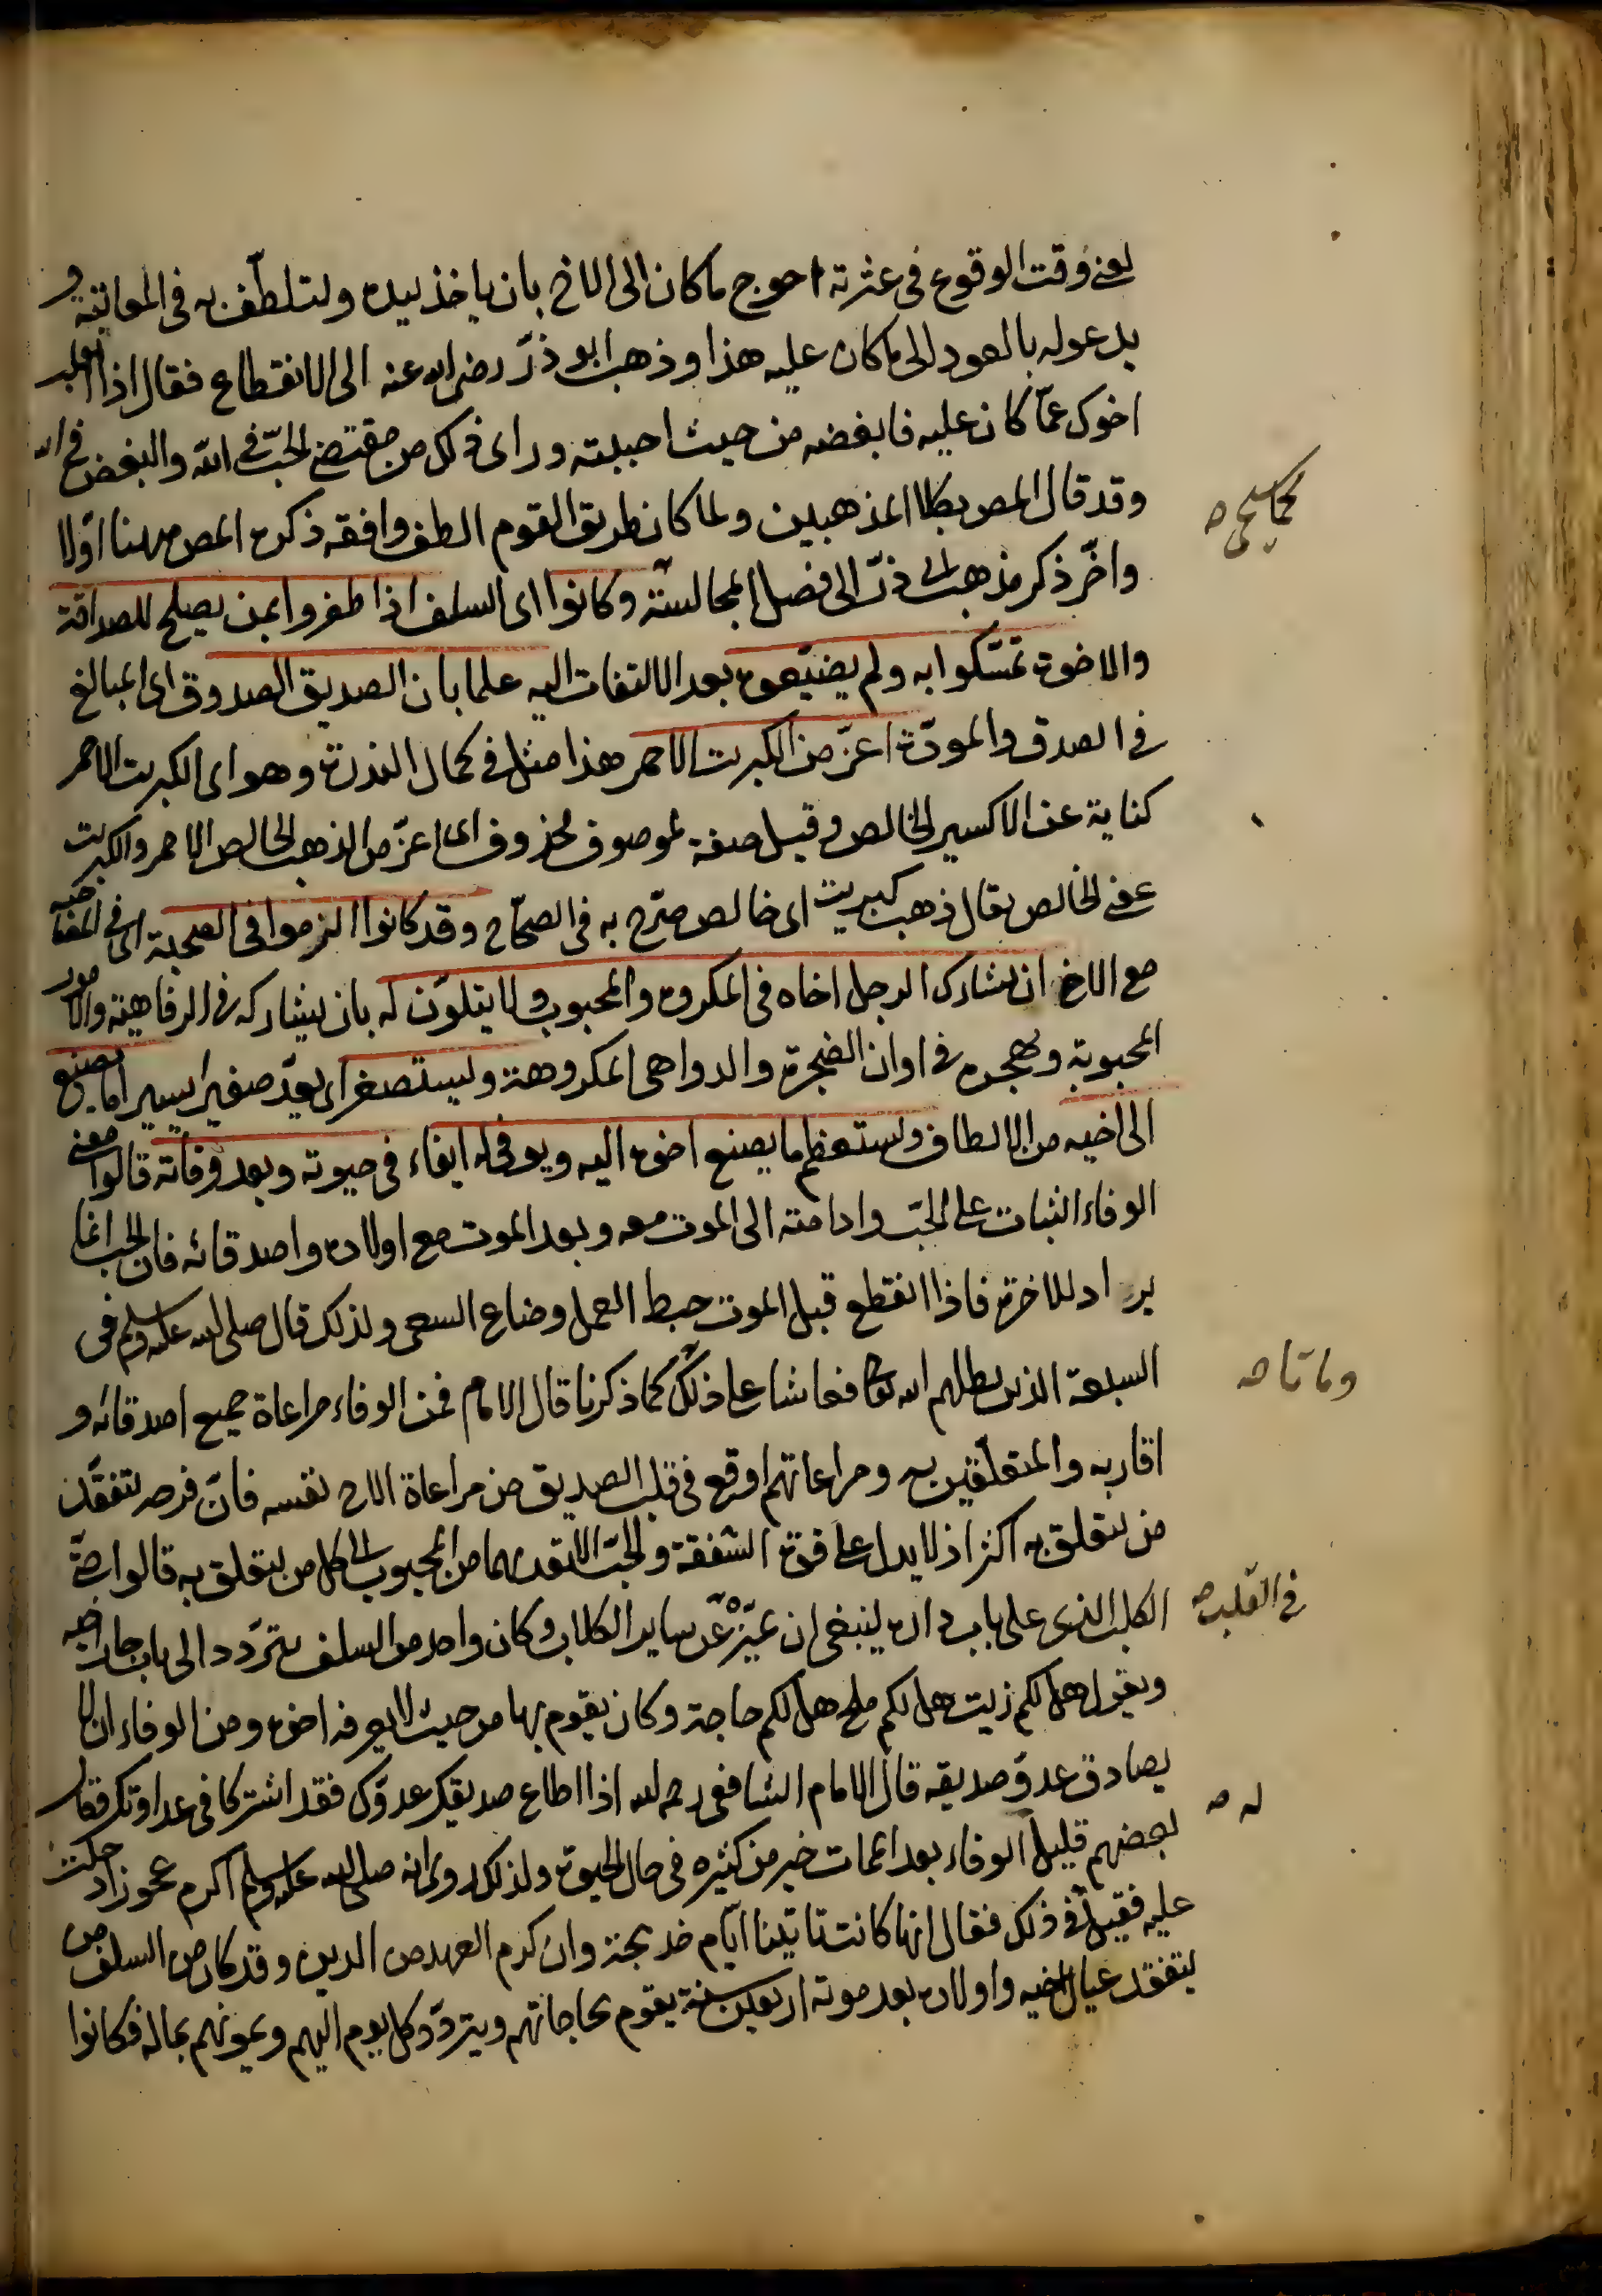 يعنى وقت الوقوع فى عثرته احوج ما كان الى الاخ بان ياخذ بيده ويتلطّف به فى المعاتبة و
يدعو له بالعود الى ما كان عليه هذا وذهب ابو ذرّ رضى الله عنه الى الانقطاع فقال اذا انقلب
اخوك عمّا كان عليه فابغضه من حيث احببته وراى ذلك من مقتضى الحبّ فى الله والبغض فى الله
وقد قال المص بكلا المذهبين ولما كان طريق القوم الطف وافقه ذكره المص ههنا اوّلا
واخّر ذكر مذهب ابى ذرّ الى فصل المجالسة وكانوا اى السلف اذا ظفروا بمن يصلح للصداقة
والاخوة تمسّكوا به ولم يضيّعوه بعد الالتفات اليه علما بان الصديق الصدوق اى المبالغ
فى الصدق والمودّة اعزّ من الكبريت الاحمر هذا مثل فى كمال الندرة وهو اى الكبريت الاحمر
كناية عن الاكسير الخالص وقيل صفة لموصوف محذوف اى اعزّ من الذهب الخالص الاحمر والكبريت
بمعنى الخالص يقال ذهب كبريت اى خالص صرّح به فى الصحّاح وقد كانوا التزموا فى الصحبة اى فى المصاحبة
مع الاخ ان يشارك الرجل اخاه فى المكروه والمحبوب ولا يتلوّن له بان يشاركه فى الرفاهية والامور
المحبوبة ويهجره فى اوان الضجرة والدواهى المكروهة ويستصغر اى يعدّ صغيرا يسيرا ما يصنع
الى اخيه من الالطاف ويستعظم ما يصنع اخوه اليه ويوفى له ايفاء فى حيوته وبعد وفاته قالوا معنى
الوفاء الثبات على الحبّ وادامته الى الموت معه وبعد الموت مع اولاده واصدقائه فان الحب انما
يراد للاخرة فاذا انقطع قبل الموت حبط العمل وضاع السعى ولذلك قال صلى الله عليه وسلم فى
السبعة الذين يظلهم الله تعالى فعاشا على ذلك كما ذكرنا قال الامام فمن الوفاء مراعاة جميع اصدقائه و
اقاربه والمتعلّقين به ومراعاتهم اوقع فى قلب الصديق من مراعاة الاخ نفسه فانّ فرحه بتفقّد
من يتعلق به اكثر اذ لا يدل على قوة الشفقة والحبّ الا تعديهما من المحبوب الى كل من يتعلق به قالوا حتىّ
الكلب الذى على باب داره ينبغى ان يميّزه عن ساير الكلاب وكان واحد من السلف يتردّد الى باب دار اخيه
ويقول هل لكم زيت هل لكم ملح هل لكم حاجة وكان يقوم بها من حيث لا يعرفه اخوه ومن الوفاء ان لا
يصادق عدوّ صديقه قال الامام الشافعى رحمه الله اذا اطاع صديقك عدوّك فقد اشتركا فى عداوتك فقال
بعضهم قليل الوفاء بعد الممات خير من كثيره فى حال الحيوة ولذلك روى انه صلى الله عليه وسلم اكرم عجوزا دخلت
عليه فقيل فى ذلك فقال انها كانت تاتينا ايّام خديجة وان كرم العهد من الدين وقد كان من السلف من
يتفقد عيال اخيه واولاده بعد موته اربعين سنة يقوم بحاجاتهم ويتردّد كل يوم اليهم ويمونهم بماله فكانوا
وماتا صح
فى القلب صح
له صح